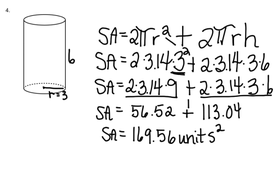 4.
6
r=3
SA=2πr²+2πrh
SA=2·3.14·3²+2·3.14·3·6
SA=2·3.14·9+2·3.14·3·6
SA=56.52+113.04
SA=169.56units²